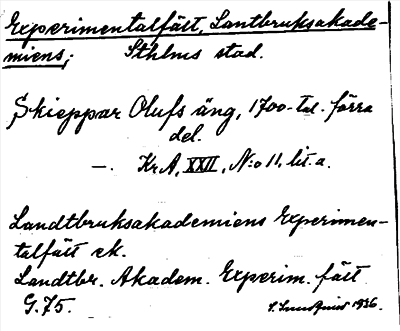 Experimentalfält, Lantbruksakade-
miens; Sthlms stad.
Skieppar Olufs äng, 1700-tal. förra
del.
—. Kr A, XXII, N:o 11, lit. a.
Landtbruksakademiens Experimen-
talfält ek.
Landtbr. Akadem. Experim. fält
G. 75. 1936.